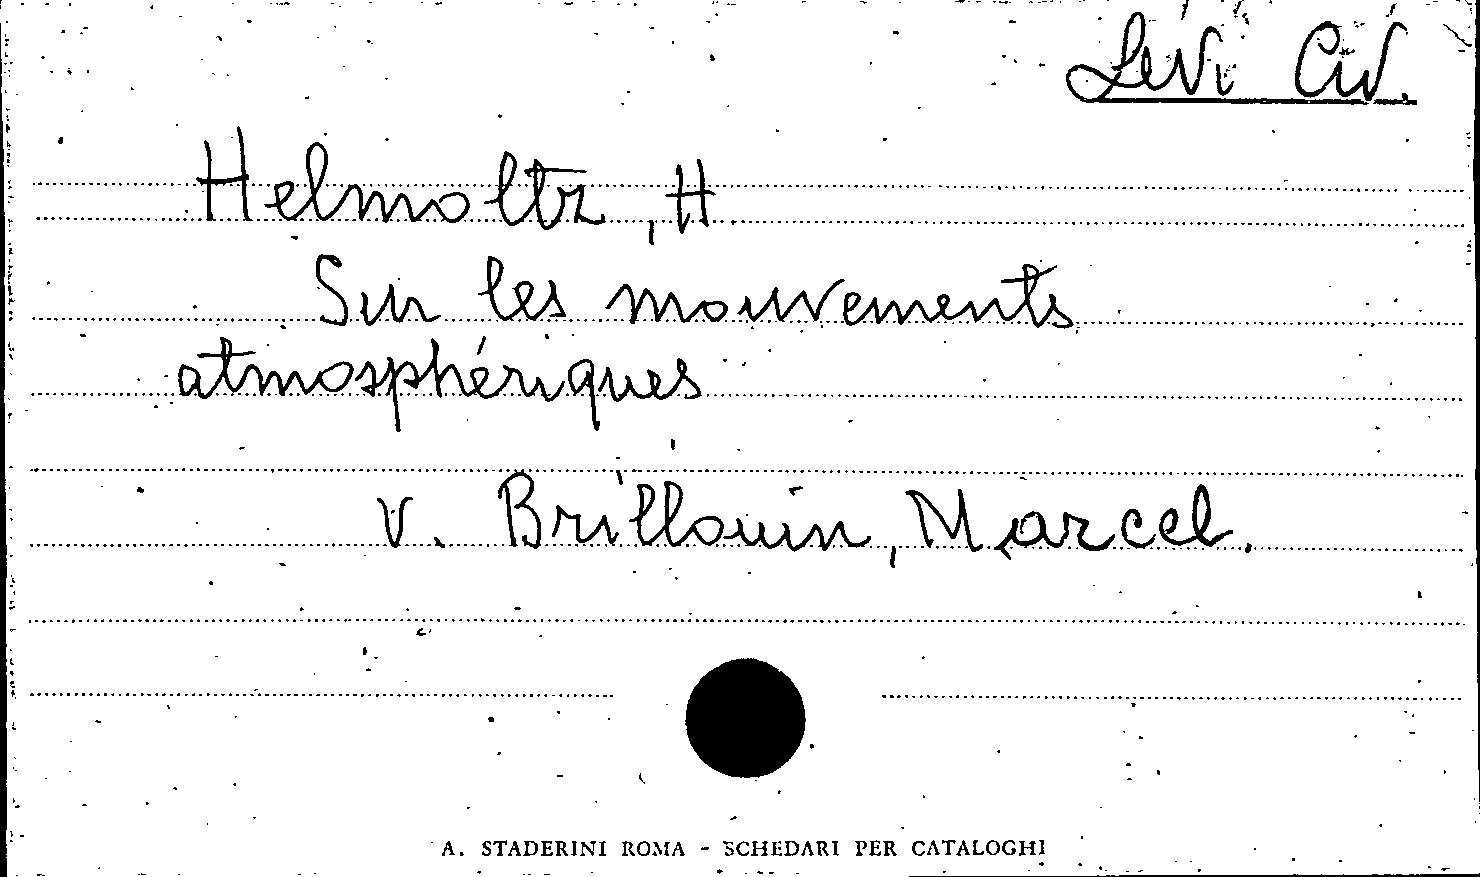 Levi Civ.
Helmoltz, H.
Sur les mouvements
atmosphériques
v. Brillouin, Marcel.
A. STADERINI ROMA - SCHEDARI PER CATALOGHI